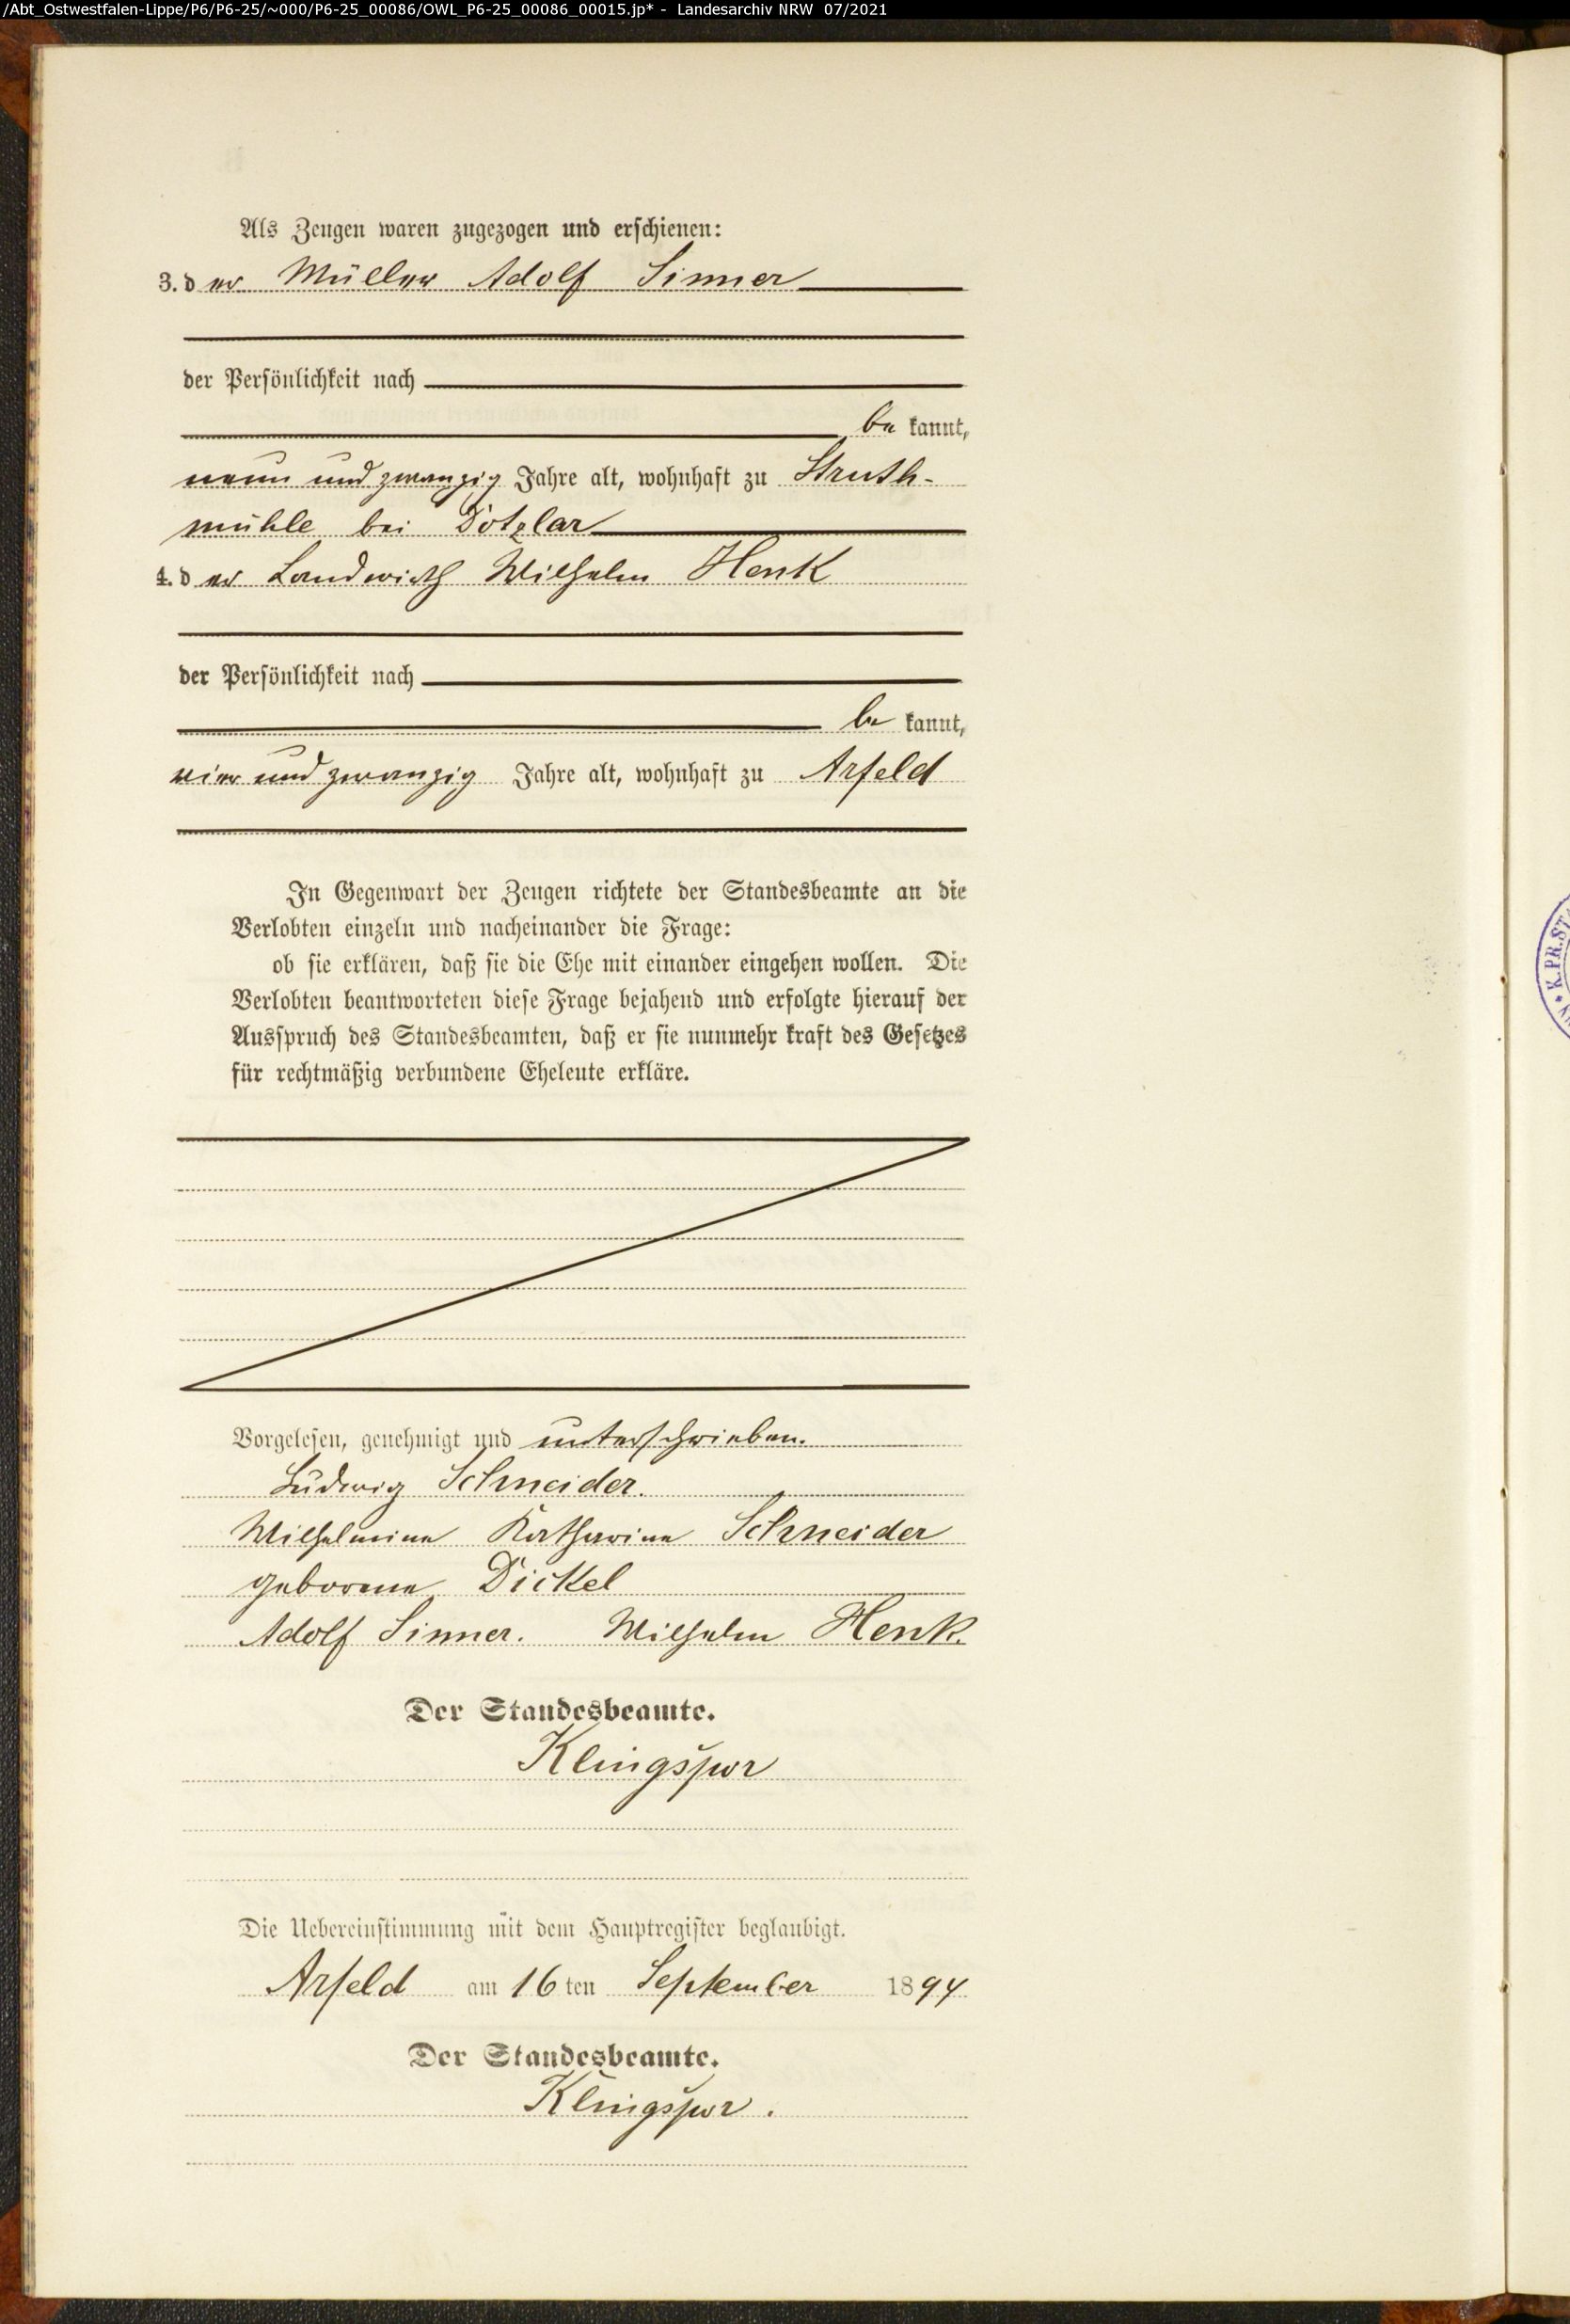 /Abt_Ostwestfalen-Lippe/P6/P6-25/~000/P6-25_00086/OWL_P6-25_00086_00015.jp* - Landesarchiv NRW 07/2021
Als Zeugen waren zugezogen und erschienen:
3. der Müller Adolf Sinner
der Persönlichkeit nach
be kannt,
neun und zwanzig Jahre alt, wohnhaft zu Struth-
mühle bei Dotzlar
4. der Landwirth Wilhelm Henk
der Persönlichkeit nach
be kannt,
vier und zwanzig Jahre alt, wohnhaft zu Arfeld
In Gegenwart der Zeugen richtete der Standesbeamte an die
Verlobten einzeln und nacheinander die Frage:
ob sie erklären, daß sie die Ehe mit einander eingehen wollen. Die
Verlobten beantworteten diese Frage bejahend und erfolgte hierauf der
Ausspruch des Standesbeamten, daß er sie nunmehr kraft des Gesetzes
für rechtmäßig verbundene Eheleute erkläre.
Vorgelesen, genehmigt und unterschrieben.
Ludwig Schneider.
Wilhelmine Katharine Schneider
geborene Dickel
Adolf Sinner. Wilhelm Henk.
Der Standesbeamte.
Klingspor
Die Uebereinstimmung mit dem Hauptregister beglaubigt.
Arfeld am 16ten September 1894
Der Standesbeamte.
Klingspor.
K.PR.ST